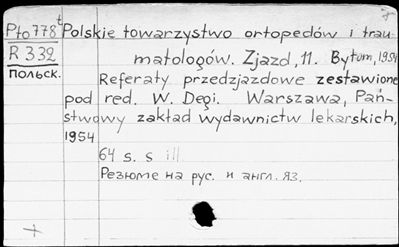 Pto 778t Polskie towarzystwo ortopedów i trau
R 332 matologów. Zjazd, 11. Bytom, 1954
польск. Referaty przedzjazdowe zestawione
pod red. W. Degi. Warszawa, Pań-
stwowy zakład wydawnictw lekarskich,
1954
64 s. s ill
Резюме на рус. и англ. яз.